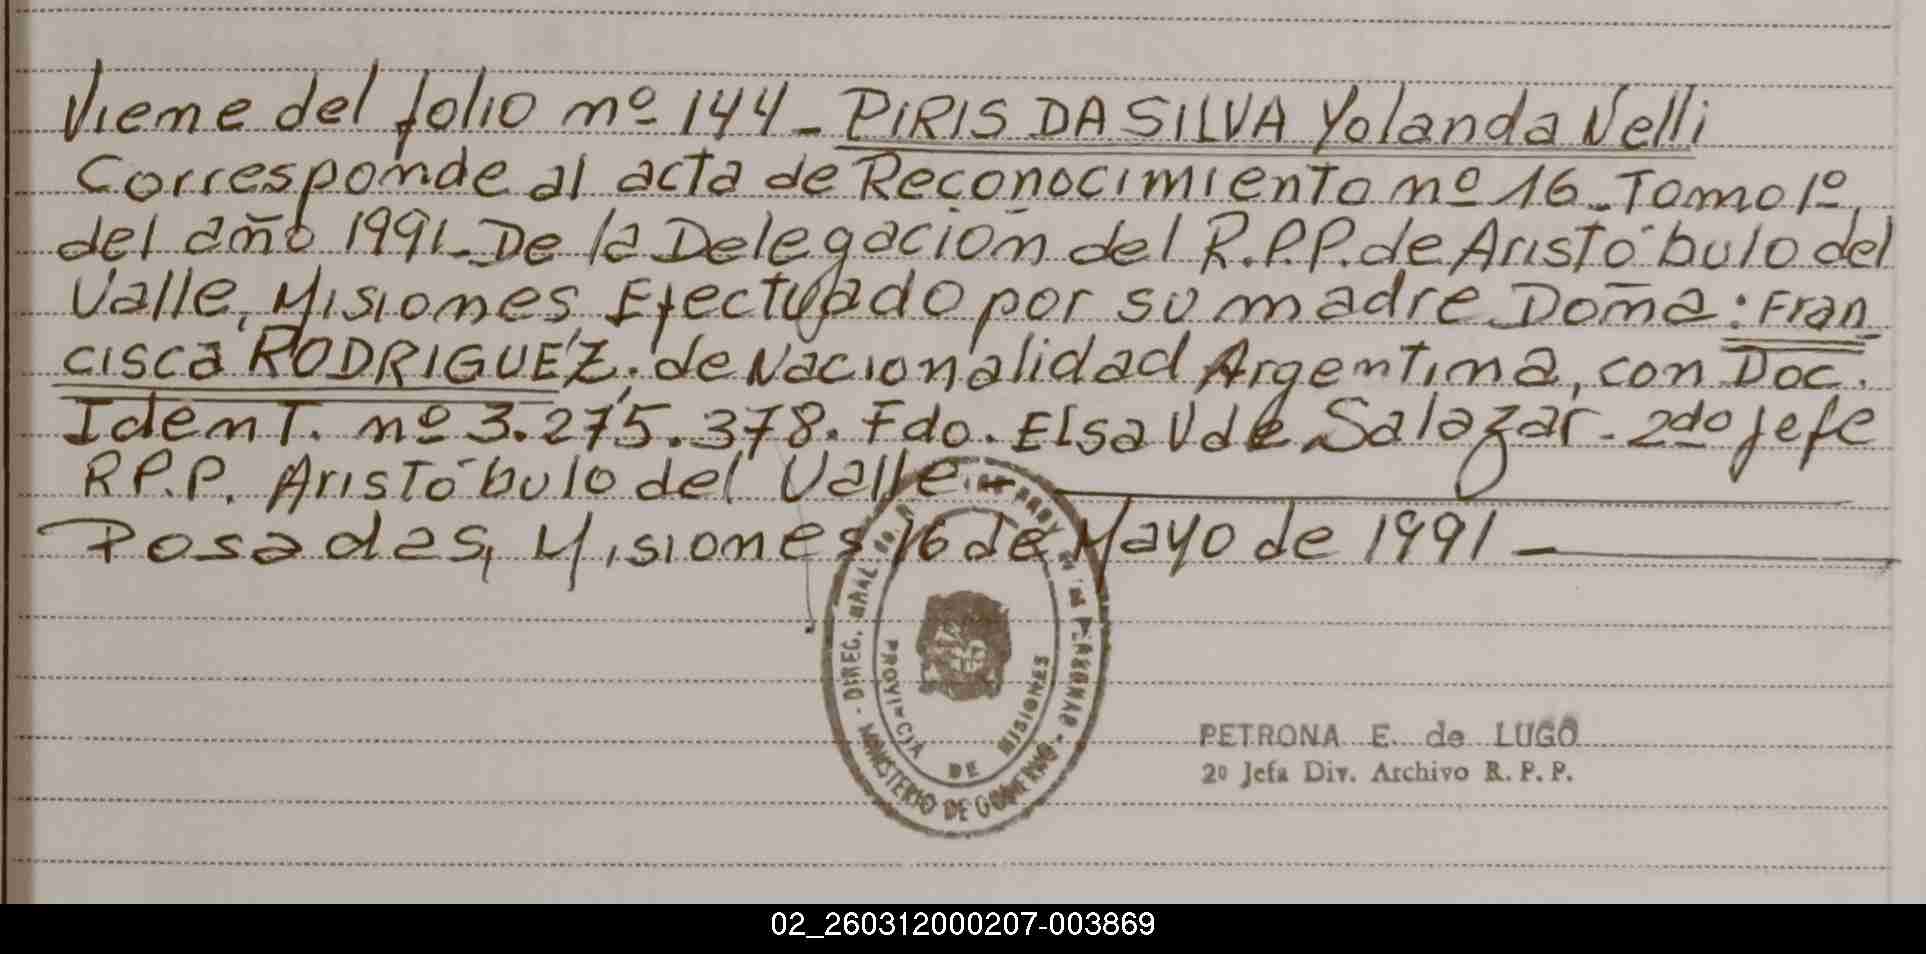 Viene del folio nº 144 - PIRIS DA SILVA Yolanda Nelli
Corresponde al acta de Reconocimiento nº 16 - Tomo 1º
del año 1991 - De la Delegación del R.P.P. de Aristóbulo del
Valle, Misiones, Efectuado por su madre Doña: Fran
cisca RODRIGUEZ. de Nacionalidad Argentina, con Doc.
Ident. nº 3.275.378. Fdo. Elsa V de Salazar - 2do Jefe
R.P.P. Aristóbulo del Valle -
Posadas, Misiones 16 de Mayo de 1991 -
DIREG. GRAL. PERSONAS
PROVINCIA DE MISIONES
MINISTERIO DE GOBIERNO
PETRONA E. de LUGO
2º Jefa Div. Archivo R. P. P.
02_260312000207-003869